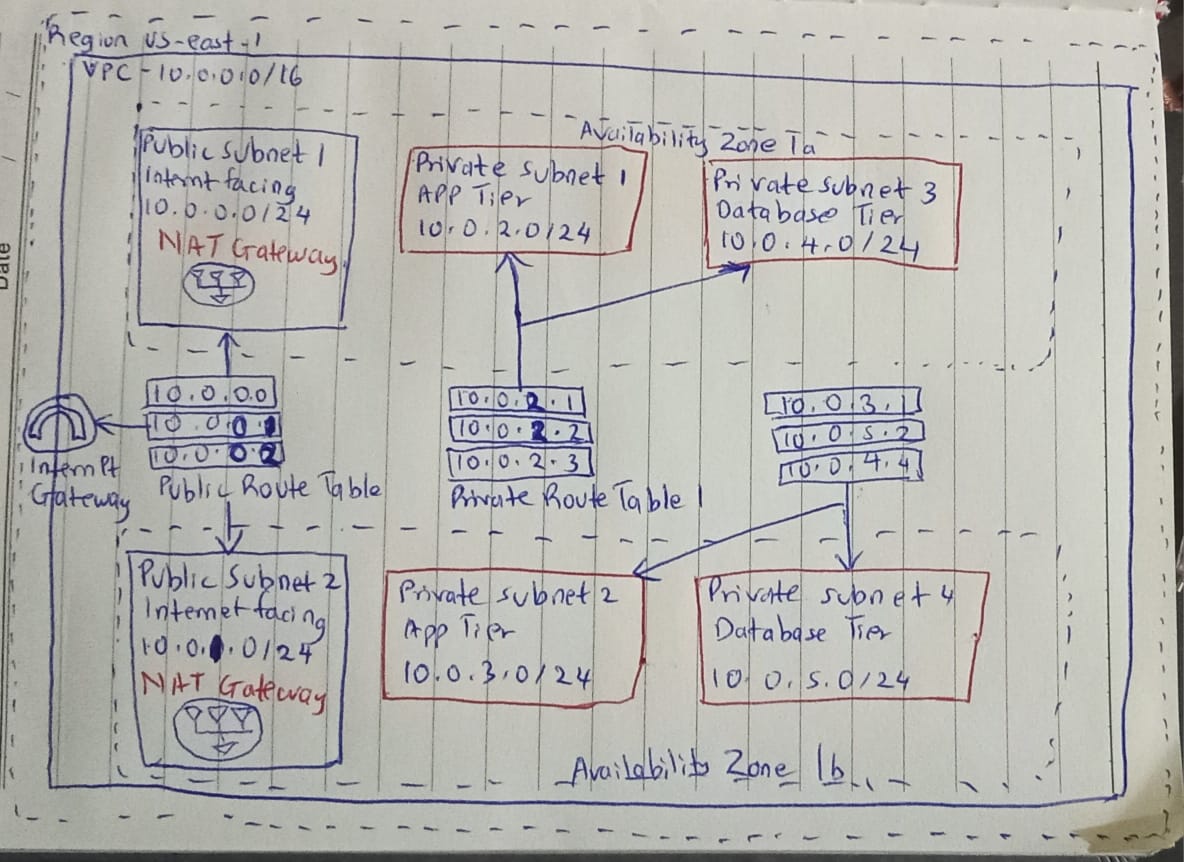 Date
Region us-east-1
VPC - 10.0.0.0/16
Availability Zone 1a
Public Subnet 1
Internt facing
10.0.0.0/24
NAT Gateway
Private Subnet 1
APP Tier
10.0.2.0/24
Private subnet 3
Database Tier
10.0.4.0/24
10.0.0.0
10.0.0.1
10.0.0.2
Public Route Table
Internet
Gateway
10.0.2.1
10.0.2.2
10.0.2.3
Private Route Table 1
10.0.3.1
10.0.5.2
10.0.4.4
Public Subnet 2
Internet facing
10.0.1.0/24
NAT Gateway
Private subnet 2
App Tier
10.0.3.0/24
Private subnet 4
Database Tier
10.0.5.0/24
Availability Zone 1b